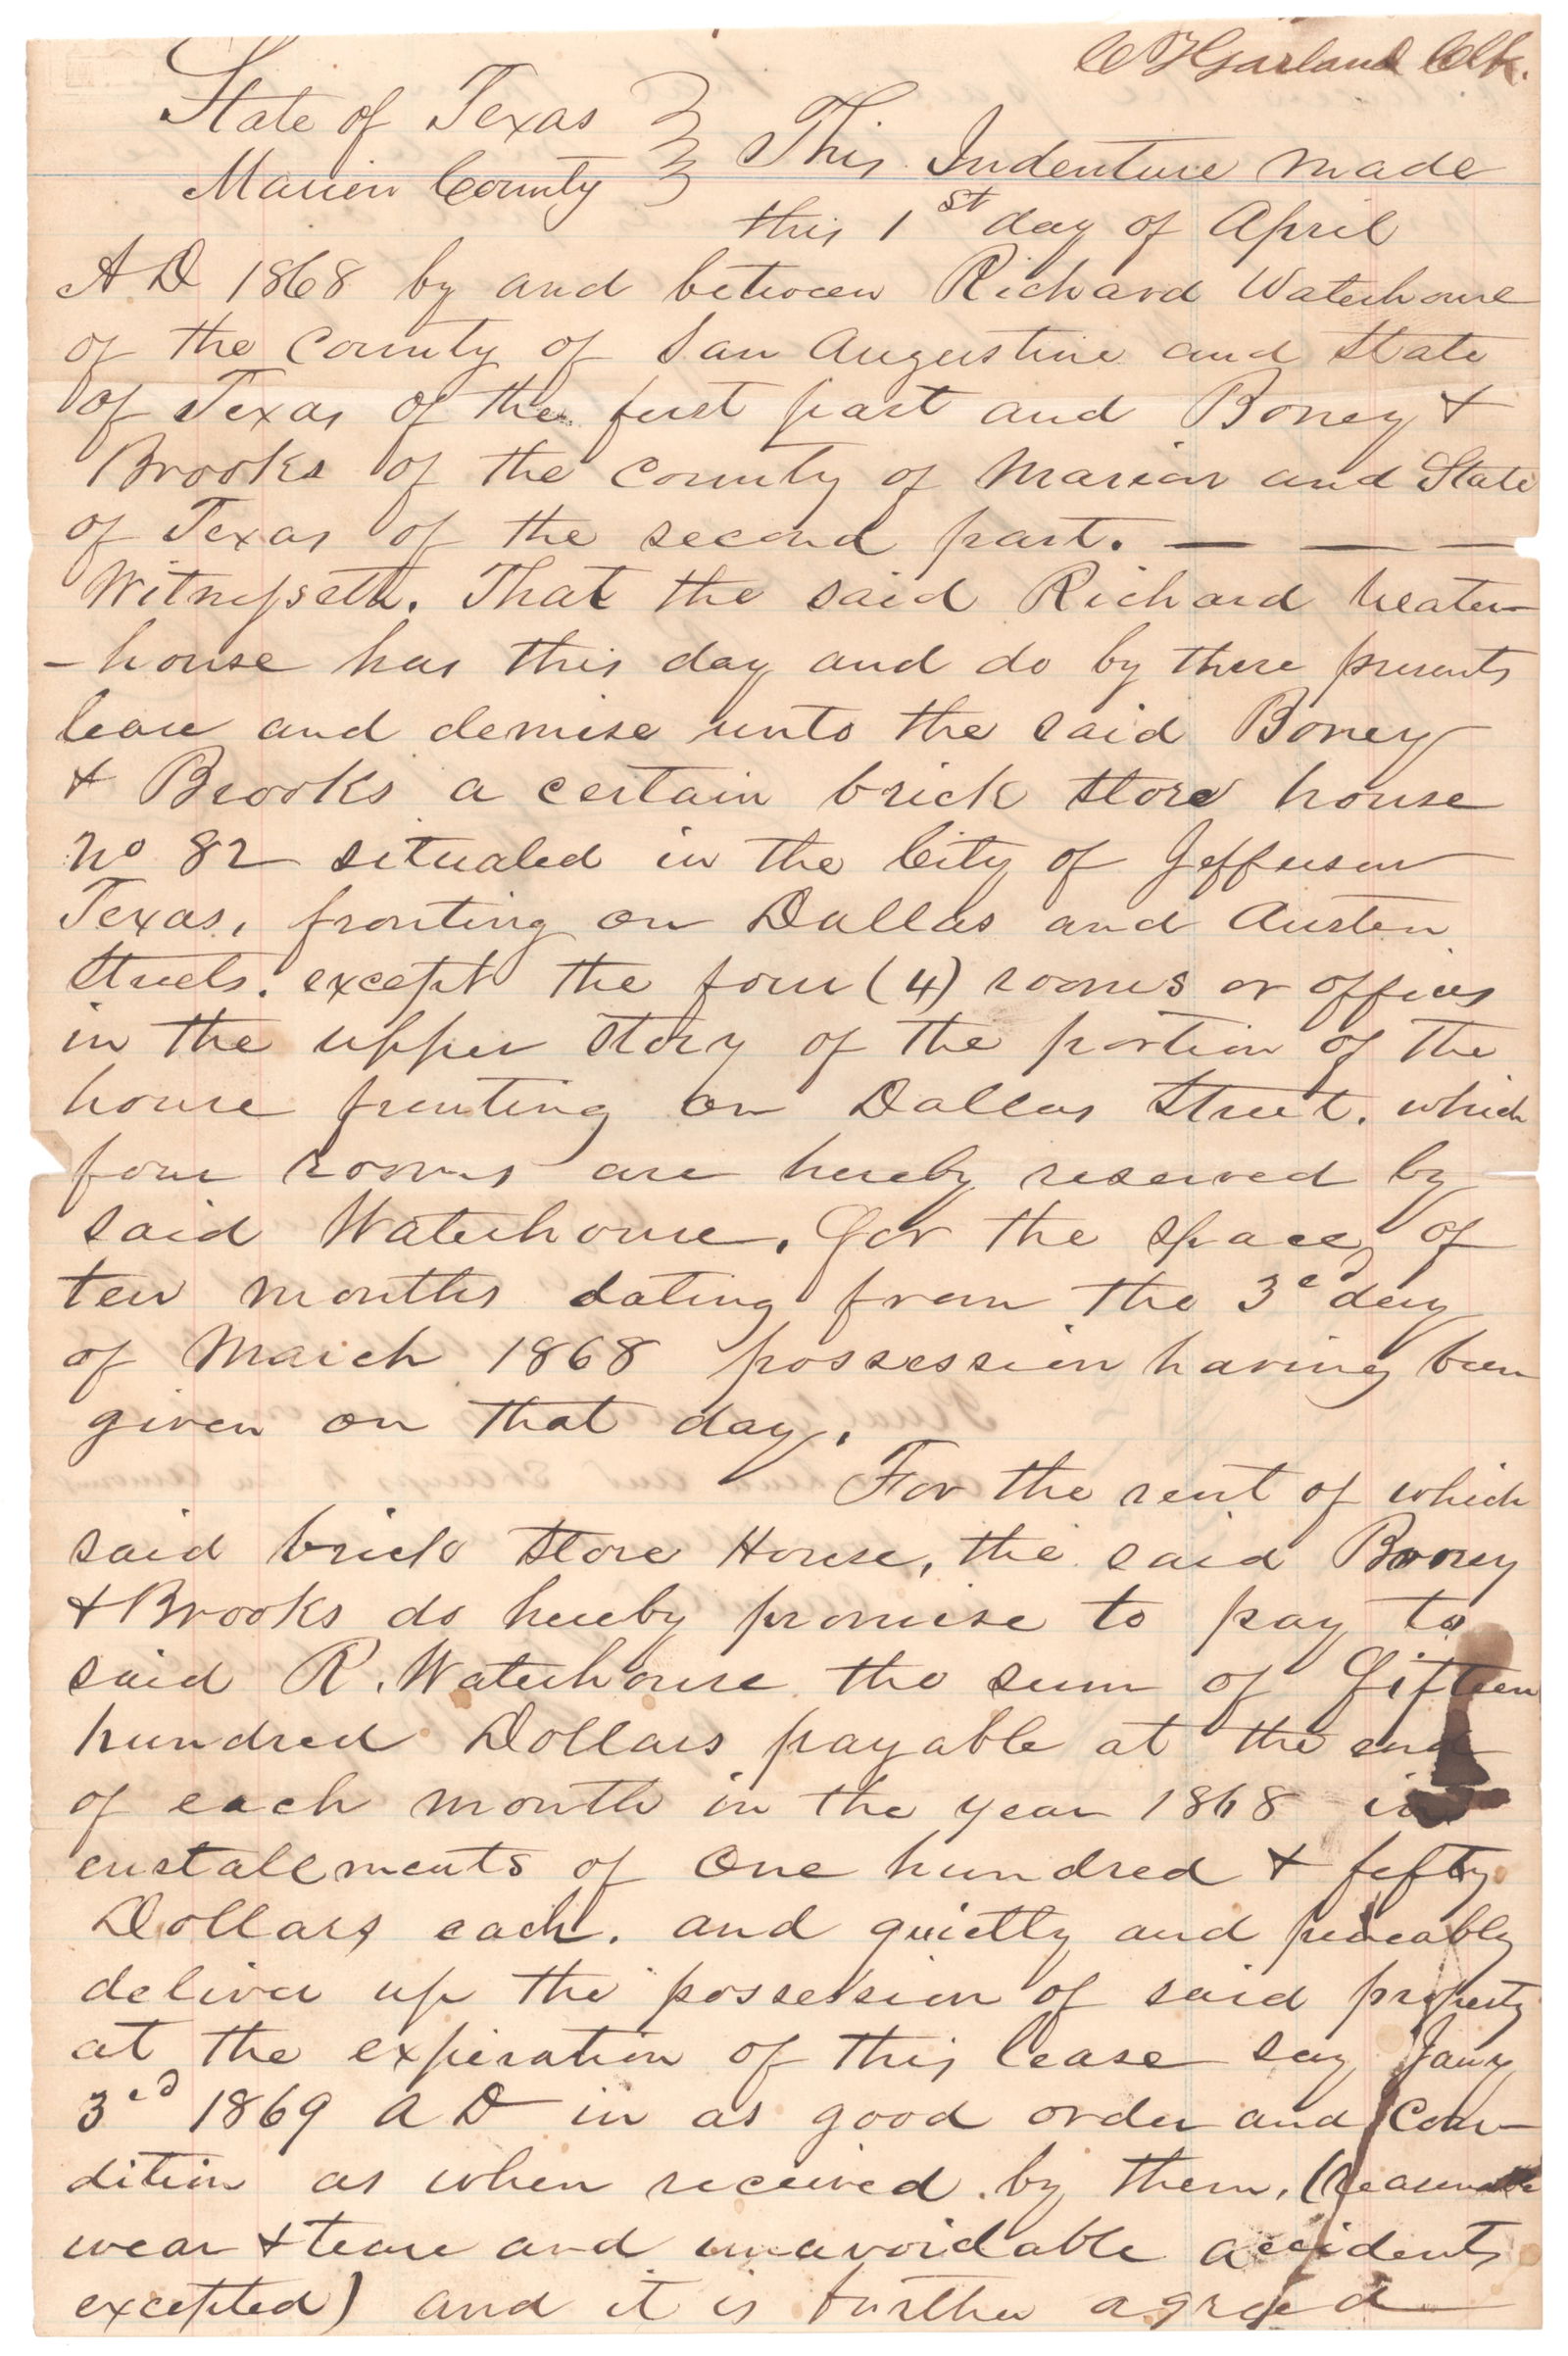 C H Garland Clk.
State of Texas
Marion County } This Indenture made
this 1st day of April
A D 1868 by and between Richard Waterhouse
of the County of San Augustine and State
of Texas of the first part and Boney &
Brooks of the County of Marion and State
of Texas of the second part. — — —
Witnesseth. That the said Richard Water-
-house has this day and do by these presents
lease and demise unto the said Boney
& Brooks a certain brick store house
No 82 situated in the City of Jefferson
Texas, fronting on Dallas and Austen
Streets. except the four (4) rooms or offices
in the upper story of the portion of the
house fronting on Dallas Street. which
four rooms are hereby reserved by
said Waterhouse. For the space, of
ten months dating from the 3rd day
of March 1868 possession having been
given on that day.
For the rent of which
said brick Store House, the said Boney
& Brooks do hereby promise to pay to
said R. Waterhouse the sum of Fifteen
hundred Dollars payable at the end
of each month in the year 1868 in
enstallments of One hundred & fifty
Dollars each. and quietly and peaceably
deliver up the possession of said property
at the expiration of this lease say Jany
3rd 1869 A D in as good order and con-
dition as when received by them, (reasonable
wear & teare and unavoidable accidents
excepted) and it is further agreed